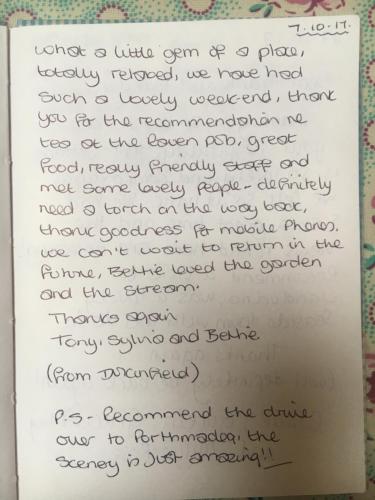 7.10.17.
What a little gem of a place,
totally relaxed, we have had
such a lovely week-end, thank
you for the recommendation re
tea at the Raven pub, great
food, really friendly staff and
met some lovely people - definitely
need a torch on the way back,
thank goodness for mobile phones.
We can't wait to return in the
future, Bettie loved the garden
and the stream.
Thanks again
Tony, Sylvia and Bettie
(from Dukinfield)
P.S - Recommend the drive
over to Porthmadog, the
scenery is just amazing!!